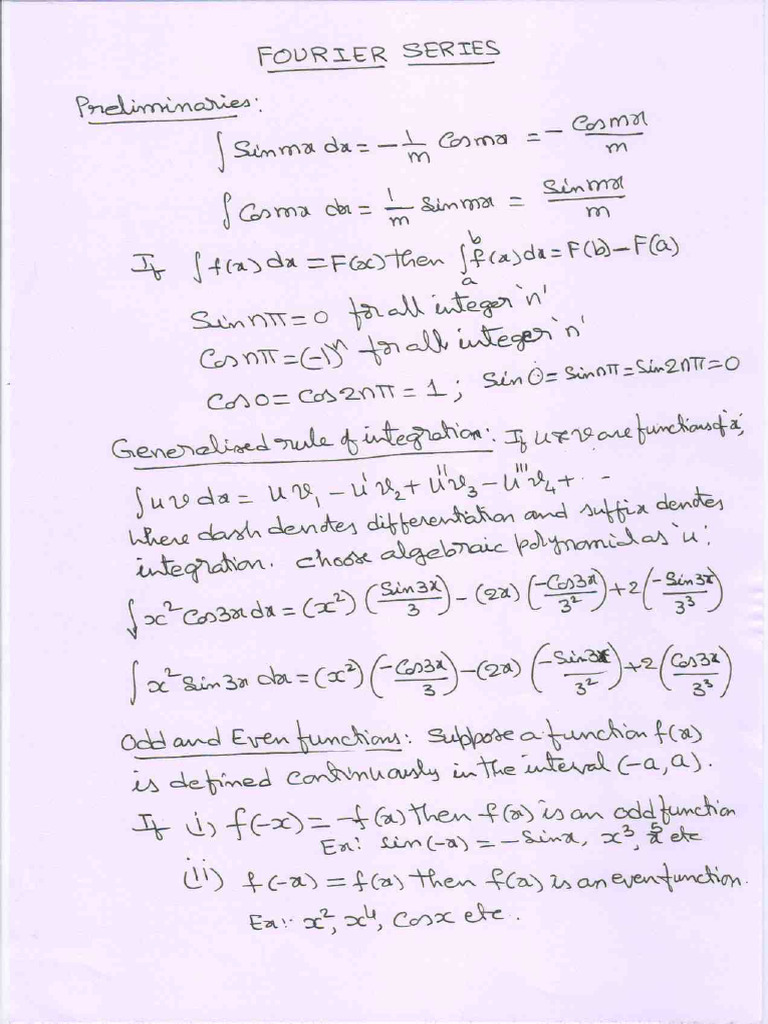 FOURIER SERIES
Preliminaries:
∫ Sin mx dx = - 1/m Cos mx = - Cos mx / m
∫ Cos mx dx = 1/m Sin mx = Sin mx / m
If ∫ f(x) dx = F(x) then ∫_a^b f(x) dx = F(b) - F(a)
Sin nπ = 0 for all integer 'n'
Cos nπ = (-1)^n for all integer 'n'
Cos 0 = Cos 2nπ = 1 ; Sin 0 = Sin nπ = Sin 2nπ = 0
Generalised rule of integration: If u & v are functions of 'x',
∫ u v dx = u v₁ - u' v₂ + u'' v₃ - u''' v₄ + . . -
where dash denotes differentiation and suffix denotes
integration. Choose algebraic polynomial as 'u'.
∫ x² Cos 3x dx = (x²) (Sin 3x / 3) - (2x) (-Cos 3x / 3²) + 2 (-Sin 3x / 3³)
∫ x² Sin 3x dx = (x²) (-Cos 3x / 3) - (2x) (-Sin 3x / 3²) + 2 (Cos 3x / 3³)
Odd and Even functions: Suppose a function f(x)
is defined continuously in the interval (-a, a).
If i) f(-x) = -f(x) then f(x) is an odd function
Ex: sin(-x) = - Sin x, x³, x⁵ etc
(ii) f(-x) = f(x) then f(x) is an even function.
Ex:- x², x⁴, Cos x etc.